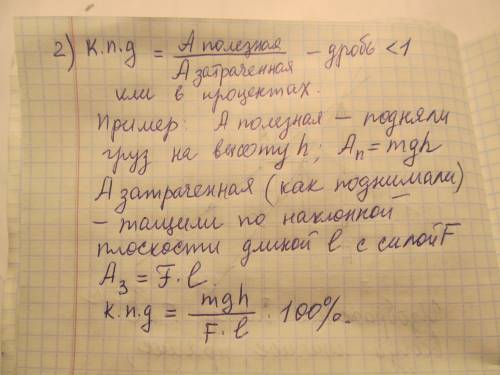 2) К.п.д = А полезная / А затраченная – дробь <1
или в процентах.
Пример: А полезная – подняли
груз на высоту h; Aп = mgh
А затраченная (как поднимали)
– тащили по наклонной
плоскости длиной l с силой F
Aз = F · l.
к.п.д = mgh / F · l · 100%.